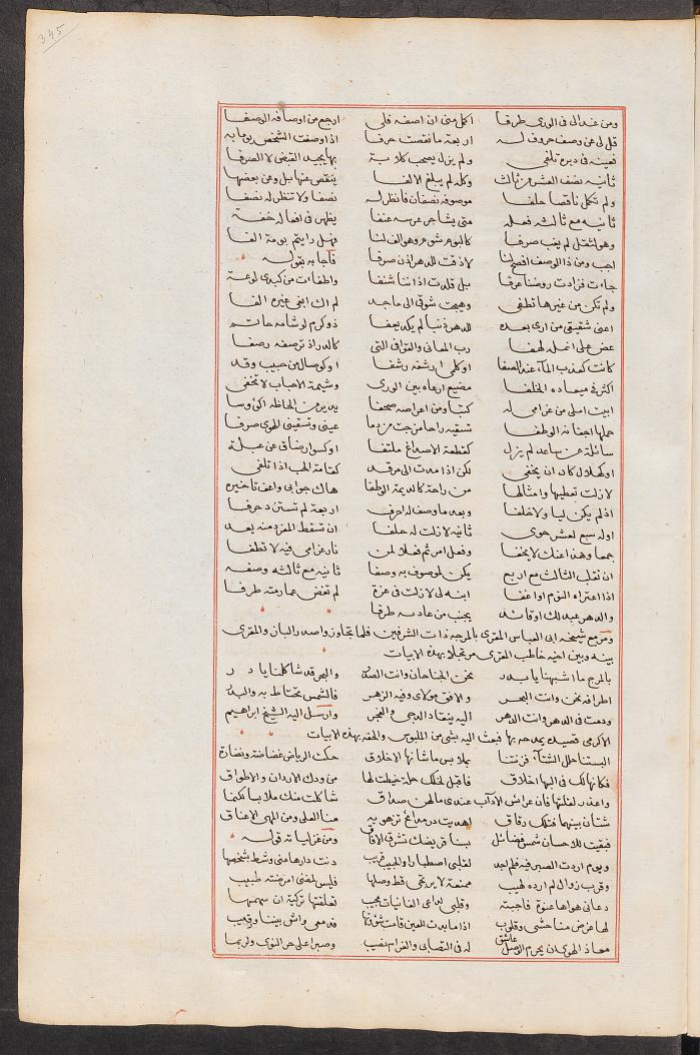 345
ومن غدا لى فى الورى طرفا اكمل منى ان اصفه فلى ارجع من اوصافه الوصفا
قل لى عن وصف حروف له اربعة ما نقصت حرفا اذا وصفت الشخص يوما به
فعينه فى ديره تلفى ولم يزل يصحب كلابة بها يجيد القبض لا الصرفا
ثانيه نصف العشر من ثالث وكله لم يبلغ الالفا ينقص عنها بل وعن بعضها
ولم تكمل ناقصا حلفا موصوفه نصفان فانظر له نصفا ولا تنظر له نصفا
ثانيه مع ثالثه فعله متى يشاجر عرسه عنفا يظهر فى افعاله خفة
وهو لثقل لم يغب صرفا كالبوم شوم وهو الف لنا فهل رايتم بومة الفا
اجب ومن ذا الوصف افصح لنا لاذقت للدهر اذن صرفا فاجابه بقوله
جاءت فزادت روضنا عرفا بل قلدت اذاننا شنفا واطفات من كبدى لوعة
ولم تكن من غيرها تطفى وهيجت شوقى الى ماجد لم اك ابغى غيره الفا
اعنى شقيقى من ارى بعده للدهر ذنبا لم يكد يعفا ذو كرم لو شامه حاتم
عض على انمله لهفا رب المعانى والقوافى التى كالدر اذ ترصفه رصفا
كانت كعذب الماء عند الصفا او كلمى ارشفه رشفا او كوصال من حبيب وقد
اكثر فى ميعاده الخلفا مضيع ارعاه بين الورى وشيمة الاحباب لا تخفى
ابيت املى من غرامى له كتبا ومن اعراضه صحفا يدير من الحاظه اكؤسا
حملها اجفانه الوطفا تسقيه راحا مزجت من دما عينى وتسقينى الهوى صرفا
سائلة عن ساعد لم يزل كقطعة الاصداغ ملتفا او كسوار ضاق عن عبلة
او كهلال كاد ان يخفى لكن اذا مدت الى مرقد كقامة الحب اذا تلفى
لا زلت تعطيها وامثالها من راحة كالديمة الوطفا هاك جوابى واعف تاخيره
اذ لم يكن ليا ولا خلفا وبعد ما وصف له احرف اربعة لم تستزد حرفا
اوله سبع لعشر حوى ثانيه لا زلت له حلفا ان تسقط المفرد منه يعد
جمعا وهذا عنك لا يخفا وفعل امر ثم فعلا لمن نار غرامى فيه لا تطفا
ان نقلب الثالث مع اربع يكن لموصوف به وصفا ثانيه مع ثالثه وصفه
اذا اعتراه النوم او اغفا ابنه لى لا زلت فى عزة لم تغض عما رمته طرفا
والدهر عبد لك او قائد يجنب من عاديته طرفا
ومر مع شيخه ابى العباس المقرى بالمرجة ذات الشرفين فلما تجاوز واصدر البان والمقرى
بينه وبين اخيه خاطب المقرى مرتجلا بهذه الابيات
بالمرج ما اشبهنا يا بدر نحن الجناحان وانت الصدر والبحر قد شاكلنا يا در
اطرافه نحن وانت البحر والافق مولاى وفيه الزهر فالشمس تحتاط به والبدر
ودمت فى الدهر وانت الدهر اليه ينقاد الدجى والفجر وارسل اليه الشيخ ابراهيم
الاكرمى قصيدة يمدحه بها فبعث اليه بشى من الملبوس والحقه بهذه الابيات
البستنا حلل الثناء فزنتنا بملابس ما شانها الاخلاق حكت الرياض غضاضة ونضارة
فكانها لك فى البها اخلاق فاقبل لخلك حلة خيطت لها من ودك الاردان والاطواق
واعذر لقلتها فان عرائس الآداب عندى مالهن صداق شاكلت منك ملابسا لكنما
شتان بينهما فتلك رقاق اهديت در مدائح تزهو به منا العلى ومن المهى الاعناق
فبقيت للاحسان شمس فضائل بسناق بفضلك تشرق الافاق ومن غزلياته قوله
ويوم اردت الصبر فيه فلم اجد لقلبى اصطبارا والحبيب قريب دنت دارها منى وشط بشخصها
وقرب نوال لم ارده لهيب ممنعة لا يرتجى قط وصلها فليس لمضنى امرضته طبيب
دعانى هواها عنوة فاجبته وقلبى لداعى الغانيات مجيب تعلقتها تركية ان سمتها
لها غرض منا حشى وقلوب اذا ما بدت للعين قامت شؤونها فدمعى واش بيننا ورقيب
معاذ الهوى ان يحرم الوصل عاشق له فى التصابى والغرام نصيب وصبرا على حر النوى ولربما